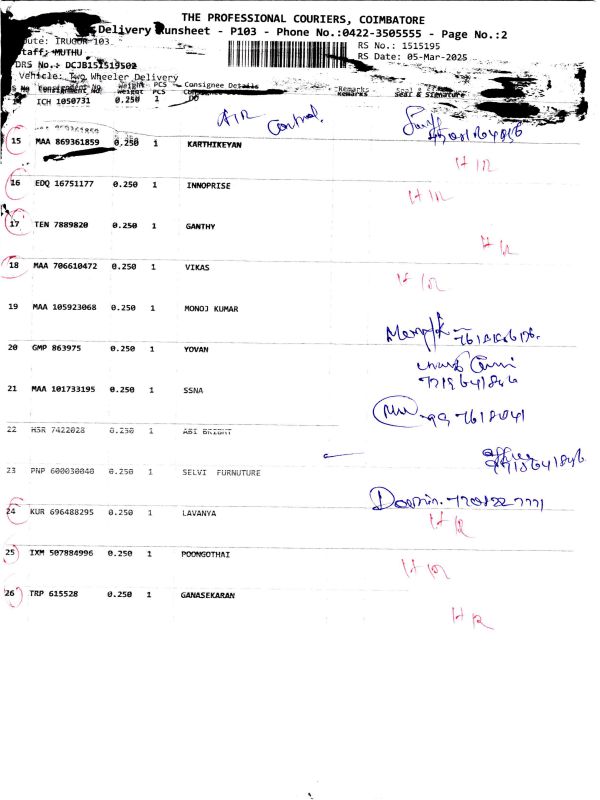 THE PROFESSIONAL COURIERS, COIMBATORE
Delivery Runsheet - P103 - Phone No.:0422-3505555 - Page No.:2
oute: IRUGUR 103
RS No.: 1515195
taff: MUTHU
RS Date: 05-Mar-2025
DRS No.: DCJB151519502
Vehicle: Two Wheeler Delivery
S No Consignment No Weight PCS Consignee Details Remarks Seal & Signature
ICH 1050731 0.250 1 DD
AIR Control
MAA 869361859
15 MAA 869361859 0.250 1 KARTHIKEYAN
HR
16 EDQ 16751177 0.250 1 INNOPRISE
HR
17 TEN 7889820 0.250 1 GANTHY
HR
18 MAA 706610472 0.250 1 VIKAS
HR
19 MAA 105923068 0.250 1 MONOJ KUMAR
20 GMP 863975 0.250 1 YOVAN
21 MAA 101733195 0.250 1 SSNA
22 HSR 7422028 0.250 1 ABI BRIGHT
office
23 PNP 600030040 0.250 1 SELVI FURNUTURE
24 KUR 696488295 0.250 1 LAVANYA
HR
25 IXM 507884996 0.250 1 POONGOTHAI
HR
26 TRP 615528 0.250 1 GANASEKARAN
HR